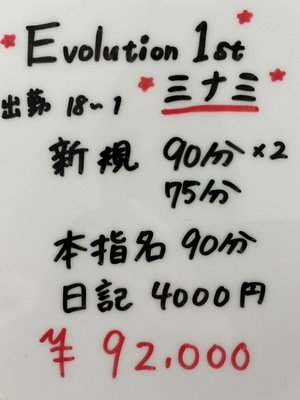 Evolution 1st
出勤 18~1 ミナミ
新規 90分×2
75分
本指名 90分
日記 4000円
¥92.000